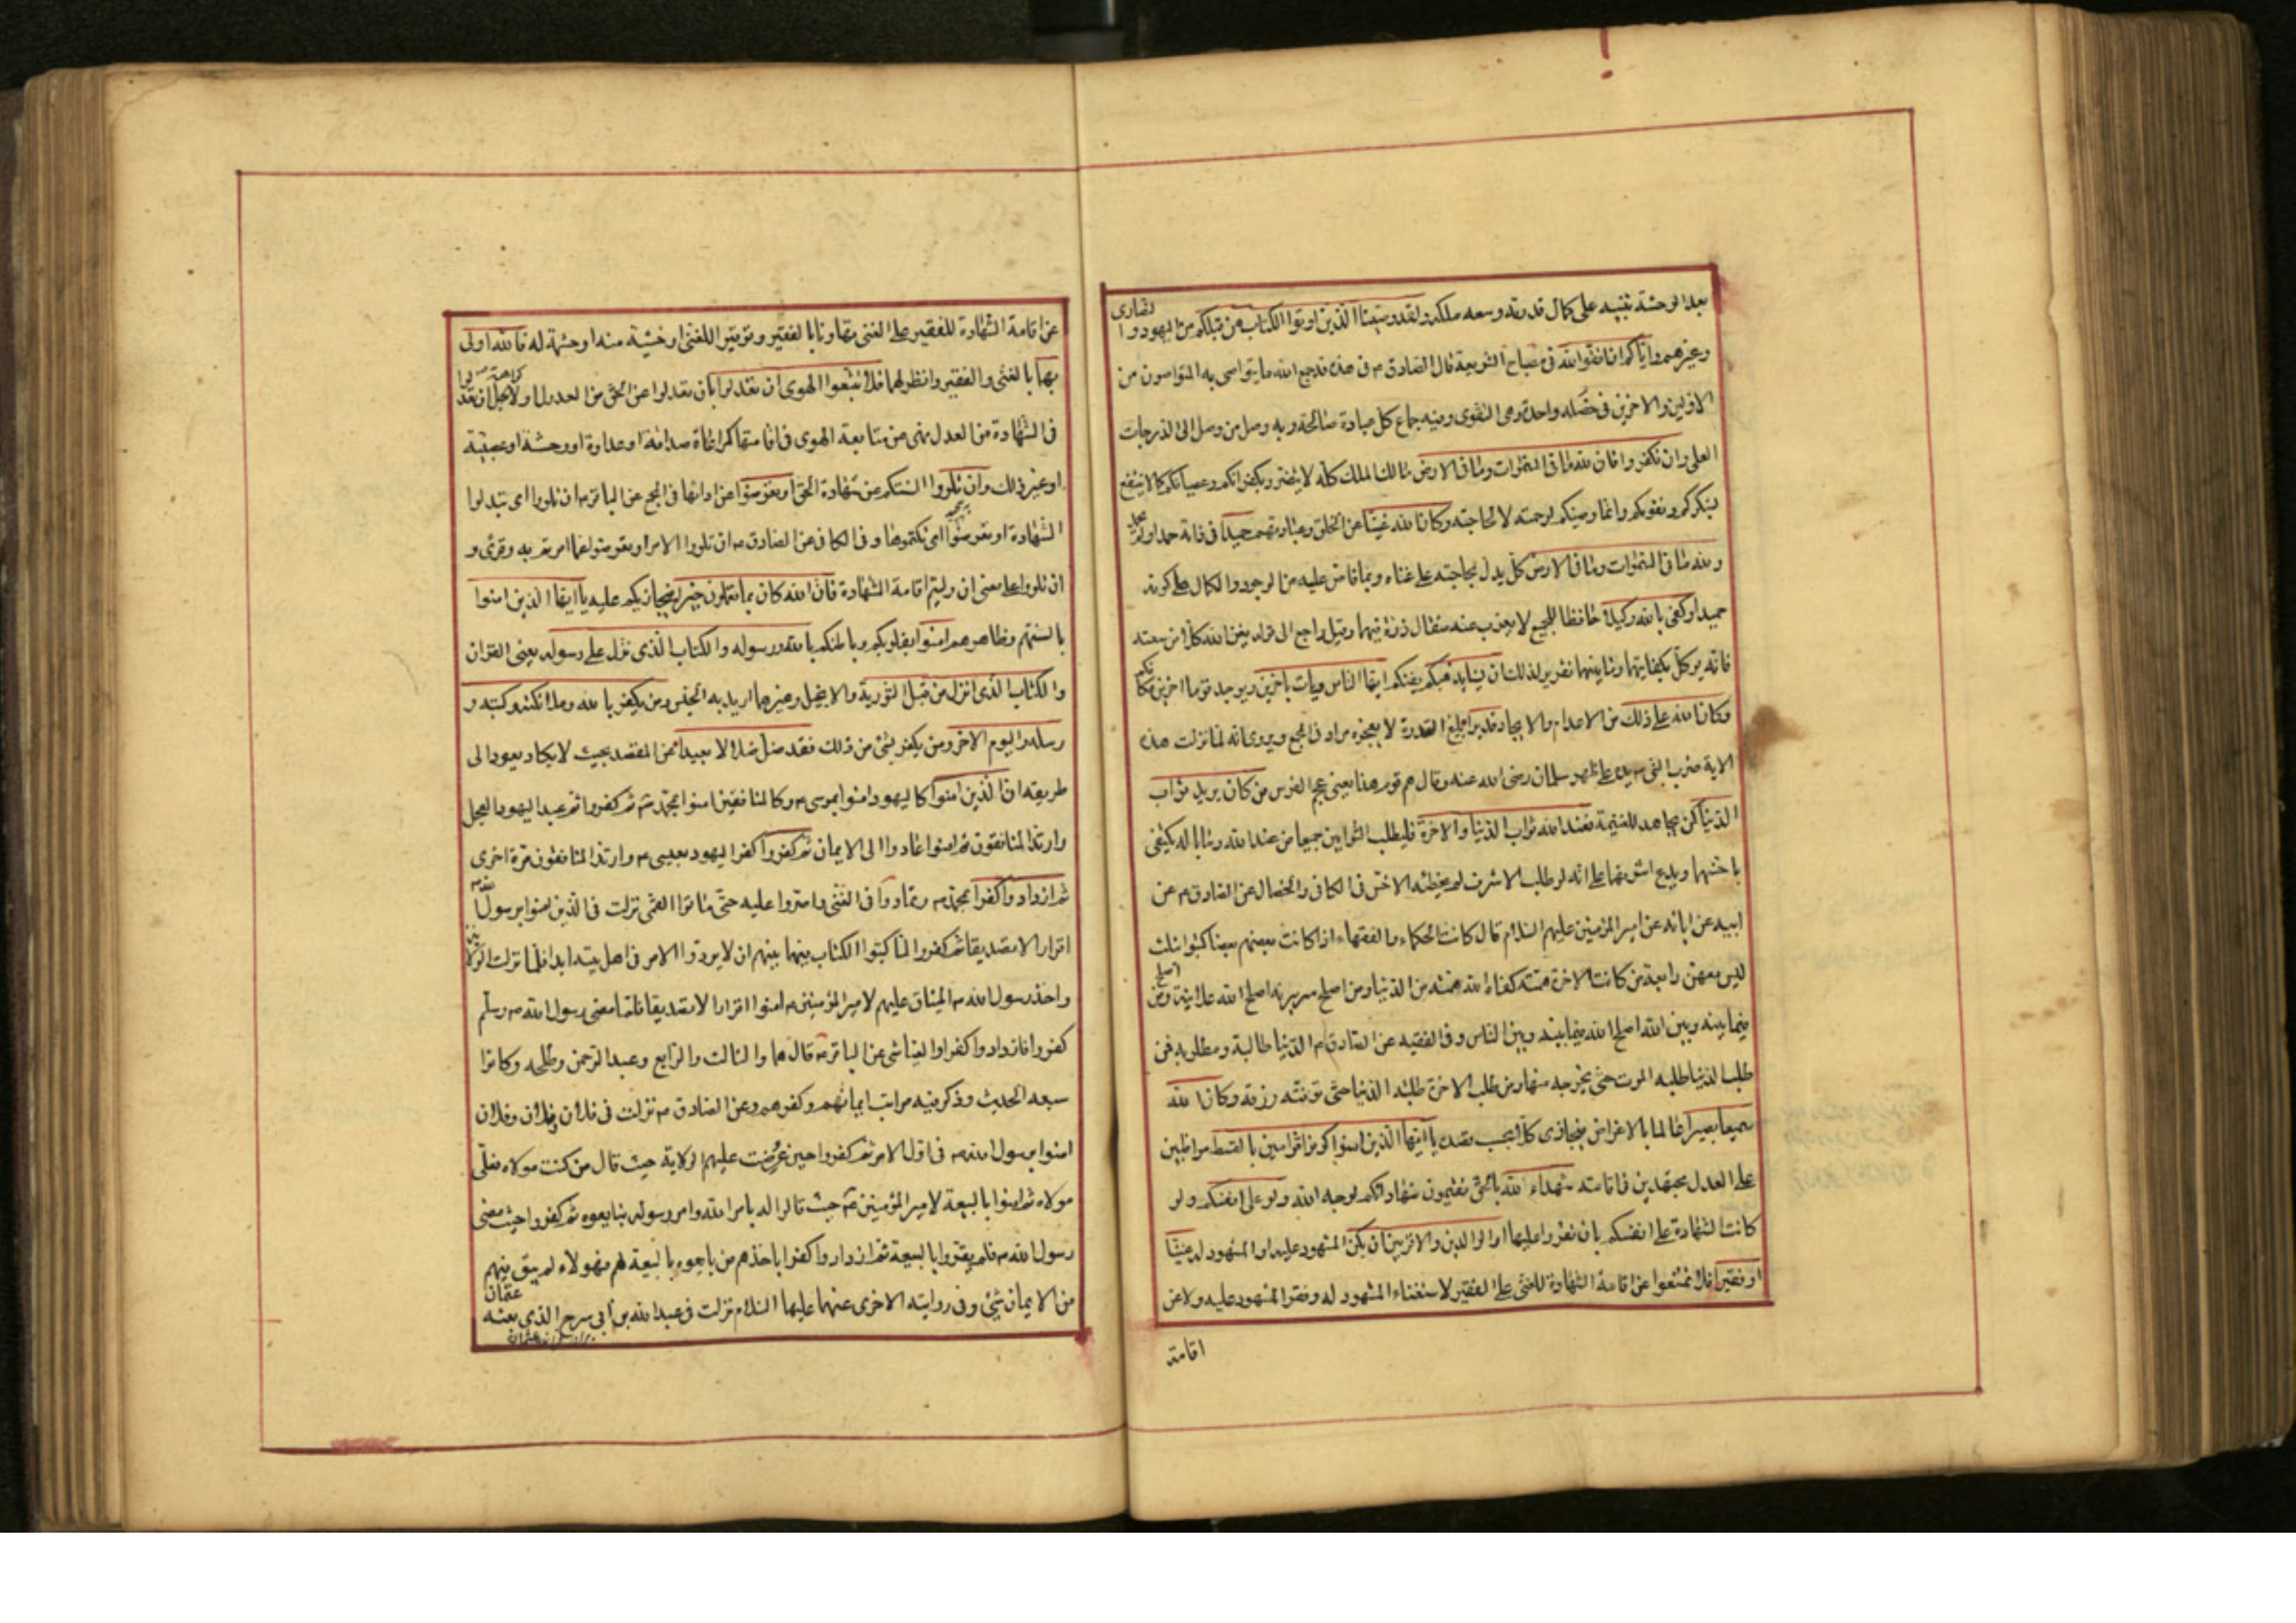 بعد الوحشة تنبيه على كمال قدرته وسعه ملكه ولقد وصينا الذين اوتوا الكتاب من قبلكم من اليهود والنصارى
وغيرهم واياكم ان اتقوا الله في مصباح الشريعة قال الصادق ع في هذه قد جمع الله ما يتواصى به المتواصون من
الاولين والاخرين في خصله واحدة وهى التقوى وفيه جماع كل عبادة صالحة وبه وصل من وصل الى الدرجات
العلى وان تكفروا فان لله ما في السموات وما في الارض مالك الملك كله لا يتضرر بكفرانكم وعصيانكم كما لا ينتفع
بشكركم وتقويكم وانما وصيكم لرحمته لا لحاجته وكان الله غنيا عن الخلق وعبادتهم حميدا في ذاته حمد او لم يحمد
ولله ما في السموات وما في الارض كل يدل بحاجته على غناه وبما فاض عليه من الوجود والكمال على كونه
حميدا وكفى بالله وكيلا حافظا للجميع لا يعزب عنه مثقال ذرة فيهما وقيل راجع الى قوله يغن الله كلا من سعته
فانه توكل بكفايتهما وما بينهما تقرير لذلك ان يشا يذهبكم يفنكم ايها الناس ويات باخرين ويوجد قوما اخرين مكانكم
وكان الله على ذلك من الاعدام والايجاد قديرا بليغ القدرة لا يعجزه مراد في المجمع ويروى انه لما نزلت هذه
الاية ضرب النبي ص يده على ظهر سلمان رضى الله عنه وقال هم قوم هذا يعنى عجم الفرس من كان يريد ثواب
الدنيا كمن يجاهد للغنيمة فعند الله ثواب الدنيا والاخرة فليطلب الثوابين جميعا من عند الله وما باله يكتفى
باخسهما ويدع اشرفهما على انه لو طلب الاشرف لم يخطئه الاخس في الكافي والخصال عن الصادق ع عن
ابيه عن ابائه عن امير المؤمنين عليهم السلام قال كانت الحكماء والفقهاء اذا كاتب بعضهم بعضا كتبوا بثلث
ليس معهن رابعة من كانت الاخرة همته كفاه الله همته من الدنيا ومن اصلح سريرته اصلح الله علانيته ومن اصلح
فيما بينه وبين الله اصلح الله فيما بينه وبين الناس وفي الفقيه عن الصادق ع الدنيا طالبة ومطلوبه فمن
طلب الدنيا طلبه الموت حتى يخرجه منها ومن طلب الاخرة طلبته الدنيا حتى توفيته رزقه وكان الله
سميعا بصيرا عالما بالاغراض فيجازى كلا بحسب قصده يا ايها الذين امنوا كونوا قوامين بالقسط مواظبين
على العدل مجتهدين في اقامته شهداء لله بالحق تقيمون شهاداتكم لوجه الله ولو على انفسكم ولو
كانت الشهادة على انفسكم بان تقروا عليها او الوالدين والاقربين ان يكن المشهود عليه او المشهود له غنيا
او فقيرا فلا تمتنعوا عن اقامة الشهادة للغنى على الفقير لاستغناء المشهود له وفقر المشهود عليه ولا عن
اقامة
عن اقامة الشهادة للفقير على الغنى تهاونا بالفقير وتوقيرا للغنى او خشية منه او حشمة له فالله اولى
بهما بالغنى والفقير وانظر لهما فلا تتبعوا الهوى ان تعدلوا بان تعدلوا عن الحق من العدول او لاجل ان تعدلوا
في الشهادة من العدل نهى عن متابعة الهوى في اقامتها كمراعاة صداقة او عداوة او وحشة او عصبية
او غير ذلك وان تلووا السنتكم عن شهادة الحق او تعرضوا عن ادائها في المجمع عن الباقر ع ان تلووا اى تبدلوا
الشهادة او تعرضوا اى تكتموها وفي الكافي عن الصادق ع ان تلووا الامر او تعرضوا عما امرتم به وقرئ و
ان تلوا على معنى ان وليتم اقامة الشهادة فان الله كان بما تعملون خبيرا فيجازيكم عليه يا ايها الذين امنوا
بالسنتهم وظاهرهم امنوا بقلوبكم وباطنكم بالله ورسوله والكتاب الذى نزل على رسوله يعنى القران
والكتاب الذى انزل من قبل التورية والانجيل وغيرهما اريد به الجنس ومن يكفر بالله وملائكته وكتبه و
رسله واليوم الاخر ومن يكفر بشئ من ذلك فقد ضل ضلالا بعيدا عن المقصد بحيث لا يكاد يعود الى
طريقه ان الذين امنوا كاليهود امنوا بموسى ع وكالمنافقين امنوا بمحمد ص ثم كفروا ثم عبد اليهود العجل
وارتد المنافقون ثم امنوا عادوا الى الايمان ثم كفروا كفر اليهود بعيسى ع وارتد المنافقون مرة اخرى
ثم ازدادوا كفرا بمحمد ص وتمادوا في الغى واصروا عليه حتى ماتوا القمى نزلت في الذين امنوا برسول الله ص
اقرارا لا تصديقا ثم كفروا لما كتبوا الكتاب فيما بينهم ان لا يردوا الامر في اهل بيته ابدا فلما نزلت الولاية
واخذ رسول الله ص الميثاق عليهم لامير المؤمنين ع امنوا اقرارا لا تصديقا فلما مضى رسول الله ص وسلم
كفروا فازدادوا كفرا والعياشى عن الباقر ع قال هما والثالث والرابع وعبد الرحمن وطلحه وكانوا
سبعه الحديث وذكر فيه مراتب ايمانهم وكفرهم وعن الصادق ع نزلت في فلان وفلان وفلان
امنوا برسول الله ص في اول الامر ثم كفروا حين عرضت عليهم الولاية حيث قال من كنت مولاه فعلى
مولاه ثم امنوا بالبيعة لامير المؤمنين ع حيث قالوا له بامر الله وامر رسوله فبايعوه ثم كفروا حيث مضى
رسول الله ص فلم يقروا بالبيعة ثم ازدادوا كفرا باخذهم من بايعوه بالبيعة لهم فهؤلاء لم يبق فيهم
من الايمان شئ وفي روايته الاخرى عنهما عليهما السلام نزلت في عبد الله بن ابى سرح الذى بعثه عثمان